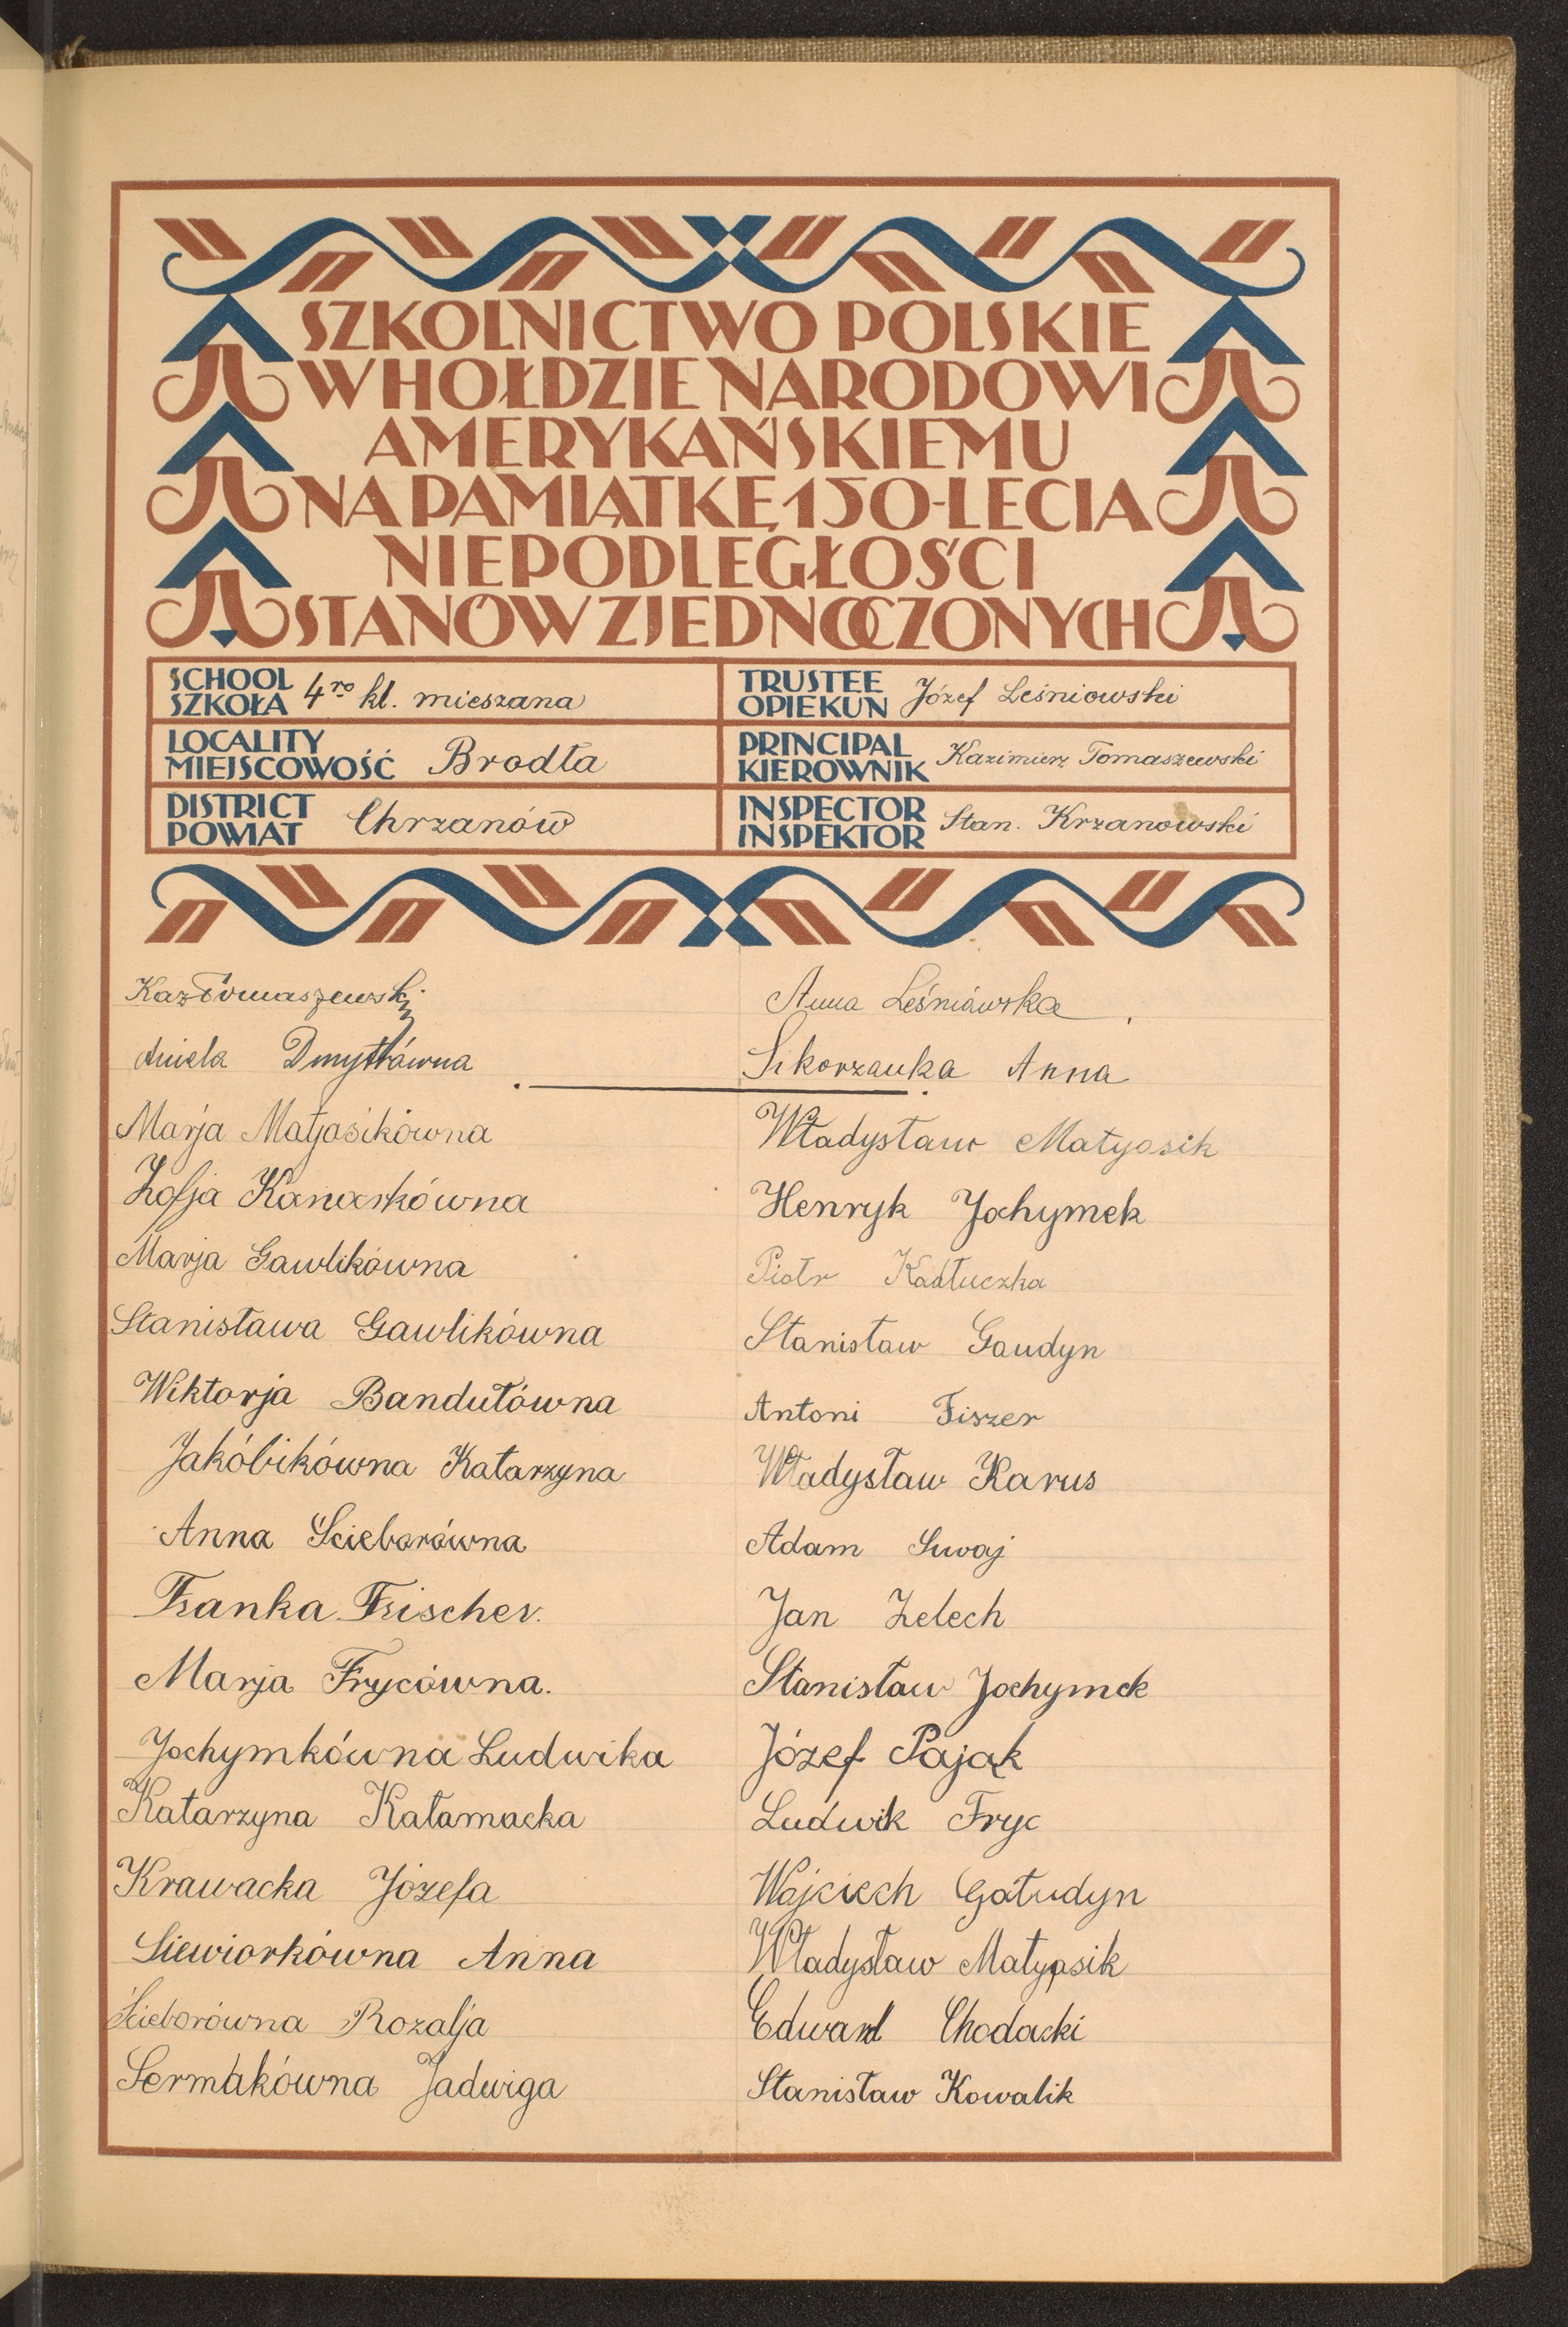 SZKOLNICTWO POLSKIE
W HOŁDZIE NARODOWI
AMERYKAŃSKIEMU
NA PAMIĄTKĘ 150-LECIA
NIEPODLEGŁOŚCI
STANÓW ZJEDNOCZONYCH
SCHOOL
SZKOŁA 4ro kl. mieszana
TRUSTEE
OPIEKUN Józef Leśniowski
LOCALITY
MIEJSCOWOŚĆ Brodła
PRINCIPAL
KIEROWNIK Kazimierz Tomaszewski
DISTRICT
POWIAT Chrzanów
INSPECTOR
INSPEKTOR Stan. Krzanowski
Kaz Tomaszewski
Aniela Dmytrówna
Marja Matjasikówna
Zofja Kanarkówna
Marja Gawlikówna
Stanisława Gawlikówna
Wiktorja Bandułówna
Jakóbikówna Katarzyna
Anna Ścieborówna
Franka Frischer.
Marja Frycówna.
Jochymkówna Ludwika
Katarzyna Katamacka
Krawacka Józefa
Siewiorkówna Anna
Ścieborówna Rozalja
Sermakówna Jadwiga
Anna Leśniowska
Sikorzanka Anna
Władysław Matyasik
Henryk Jochymek
Piotr Kadłuczka
Stanisław Gaudyn
Antoni Fiszer
Władysław Karus
Adam Suwaj
Jan Zelech
Stanisław Jochymek
Józef Pająk
Ludwik Fryc
Wojciech Gołudyn
Władysław Matyasik
Edward Chodacki
Stanisław Kowalik